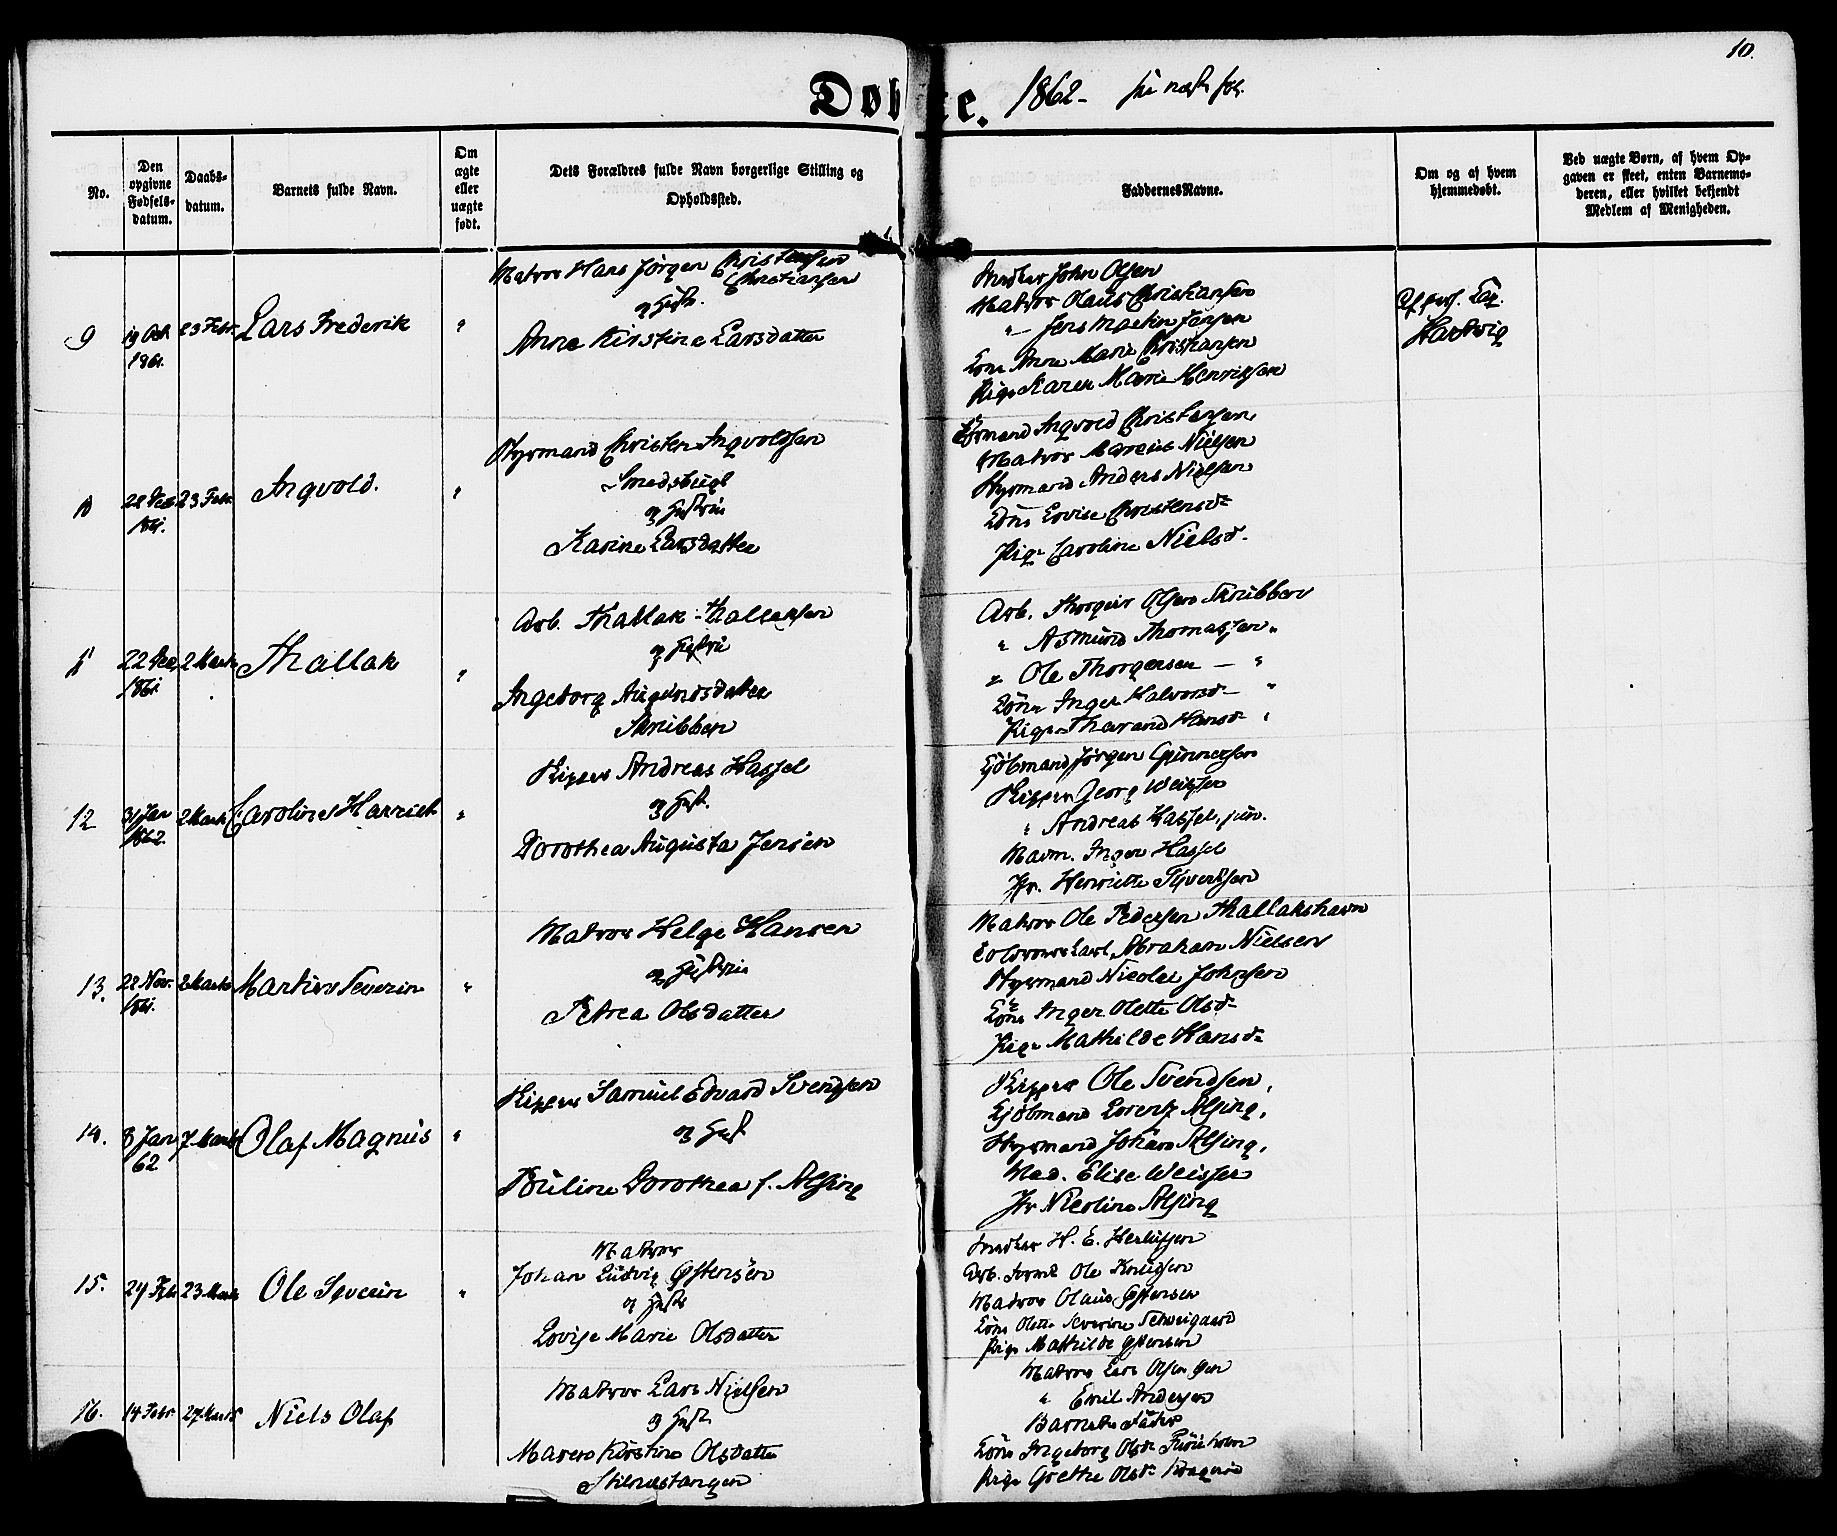 10.
Døbte. 1862-
No.
Den opgivne Fødsels-datum.
Daabs-datum.
Barnets fulde Navn.
Om ægte eller uægte født.
Dets Forældres fulde Navn borgerlige Stilling og Opholdssted.
Faddernes Navne.
Om og af hvem hjemmedøbt.
Ved uægte Børn, af hvem Opgaven er skeet, enten Barnemoderen, eller hvilket bekjendt Medlem af Menigheden.
9
19 Oct 1861.
23 Febr.
Lars Frederik
"
Matros Hans Jörgen Christensen
Christiansen
og Hustr.
Anne Kirstine Larsdatter
Snedker John Olsen
Matros Olaus Christiansen
" Jens Martin Jensen
Kone Anne Marie Christiansen
Pige Karen Marie Henriksen
Hartvig
10
23 Febr.
Ingvold.
"
Styrmand Christen Ingvoldsen
og Hustru
Karine Larsdatter
Ingvold Christensen
Matros Marcus Nielsen
Styrmand Anders Nielsen
Kone Lovise Christensd.
Pige Caroline Nielsd.
11
22 Dec 1861.
2 Marts
Thallak
"
Arb. Thallak Thallaksen
og Hustru
Ingeborg Augundsdatter
Skrubben
Arb. Thorgeir Olsen Skrubben
" Asmund Thomassen "
" Ole Thorgersen — "
Kone Inger Halvorsd. "
Pige Tharand Hansd. "
12
31 Jan 1862.
2 Marts
Caroline Harriet
"
Skipper Andreas Hassel
og Hust.
Dorothea Augusta Jensen
Kjöbmand Jörgen Gunnersen
Skipper Georg
" Andreas Hassel, jun.
Madm. Inger Hassel
Jfr. Henriette Syvertsen
13.
28 Nov. 1861.
2 Marts
Martin Severin
"
Matros Helge Hansen
og Hustru
Petrea Olsdatter
Matros Ole Pedersen Thallakshavn
Carl Abraham Nielsen
Styrmand Nicolai Johnsen
Kone Inger Olette Olsd.
Pige Mathilde Hansd.
14.
8 Jan 62
7 Marts
Olaf Magnus
"
Skipper Samuel Edvard Svendsen
og Hust
Pauline Dorothea f. Alsing
Skipper Ole Svendsen,
Kjöbmand Lorentz Alsing,
Styrmand Johan Alsing,
Mad. Elise Weisser
Jfr Nicoline Alsing
15.
24 Feb
23 Marts
Ole Severin
"
Matros
Johan Ludvig Östensen
og Hustr
Lovise Marie Olsdatter
Snedker H. E.
Arb. Ole Knudsen
Matros Olaus Östensen
Kone Olette Severine Schweigaard
Pige Mathilde Östensen
16.
14 Febr
27 Marts
Niels Olaf
Matros Lars Nielsen
og Hust.
Maren Kirstine Olsdatter
Stilnestangen
Matros Lars Olsen
" Emil Andersen
Barnets Fader
Kone Ingeborg Olsd. Furuholm
Pige Grethe Olsd. Kragerö